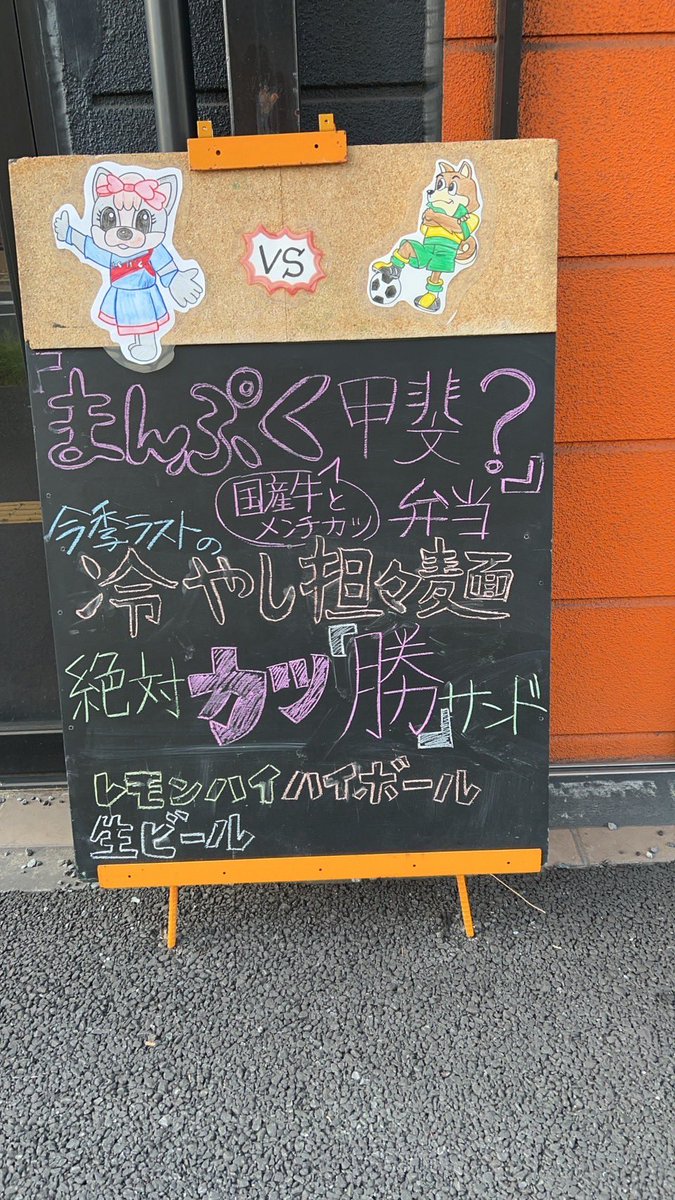 VS
「まんぷく甲斐?」
国産牛と
メンチカツ
弁当
今季ラストの
冷やし担々麺
絶対カツ『勝』サンド
レモンハイ ハイボール
生ビール